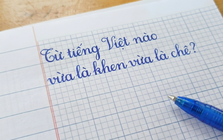 Từ tiếng Việt nào
vừa là khen vừa là chê?